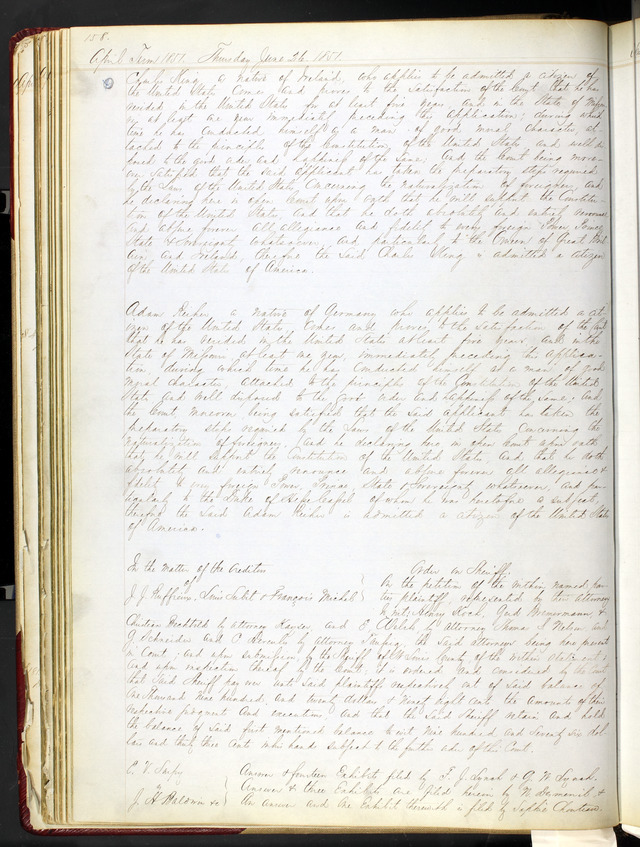 158.
April Term 1851. Thursday June 26. 1851.
King a native of Ireland, who applies to be admitted a citizen of
the United States comes and proves to the satisfaction of the Court that he has
resided in the United States for at least five years and in the State of
at least one year immediately preceding this application; during which
time he has conducted himself as a man of good moral character, at-
tached to the principles of the Constitution of the United States and well dis-
posed to the good order and happiness of the same; and the Court being more-
over satisfied that the said applicant has taken the preparatory steps required
by the Laws of the United States concerning the naturalization of foreigners, and
he declaring here in open Court upon oath that he will support the Constitu-
tion of the United States, and that he doth absolutely and entirely renounce
and abjure forever all allegiance and fidelity to every foreign Power, Prince,
State & Sovereign whatsoever, and particularly to the Queen of Great Brit-
ain and Ireland, therefore the said Charles King is admitted a citizen
of the United States of America.
Adam a native of Germany who applies to be admitted a cit-
izen of the United States, comes and proves to the satisfaction of the Court
that he has resided in the United States at least five years and in the
State of Missouri at least one year, immediately preceding this applica-
tion during which time he has conducted himself as a man of good
moral character, attached to the principles of the Constitution of the United
States and well disposed to the good order and happiness of the same; and
the Court moreover being satisfied that the said applicant has taken the
preparatory steps required by the Laws of the United States concerning the
naturalization of foreigners, and he declaring here in open Court upon oath
that he will support the Constitution of the United States, and that he doth
absolutely and entirely renounce and abjure forever all allegiance &
fidelity to every foreign Power, Prince State & Sovereign whatsoever, and par-
ticularly to the of Hesse Cassel of whom he was heretofore a subject,
therefore the said Adam is admitted a citizen of the United States
of America.
In the matter of the Creditors
of
J. J. Louis & François Michel
Order on Sheriff.
On the petition of the within named par-
ties plaintiff represented by their attorneys
Henry Koch, &
Christian by attorney and by attorney Thomas and
G. Schneider and by attorney the said attorneys being here present
in Court; and upon submission by the Sheriff of St Louis County, of the within statement &
and upon thereof by the Court it is ordered and considered by the Court
that said Sheriff pay over unto said plaintiffs respectively out of said balance of
One thousand nine hundred and twenty dollars & ninety eight cents the amounts of their
respective judgments and executions and that the said Sheriff retain and hold
the balance of said first mentioned balance to wit nine hundred and seventy six dol-
lars and thirty three cents in his hands subject to the further order of this Court.
C. V.
vs
J. H. Baldwin &c
Answer & fourteen Exhibits filed by T. J. Lynch & G. W. Lynch.
Answer & three Exhibits are filed herein by N. &
An answer and one Exhibit therewith is filed by Sophie Chouteau.